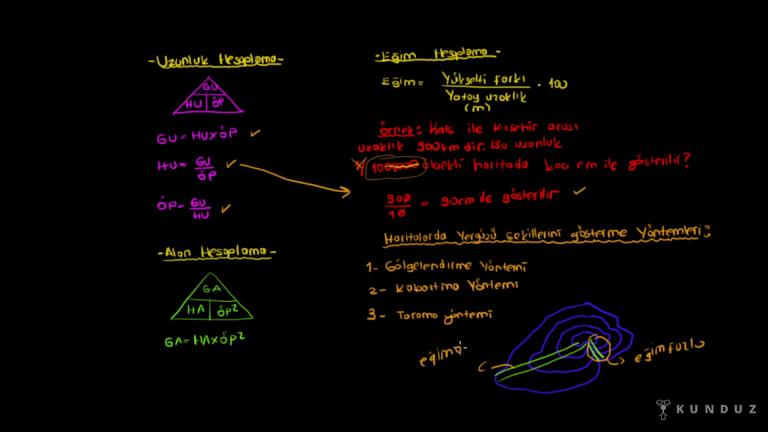 -Uzunluk Hesaplama-
GU
HU ÖP
GU=HUxÖP
HU= GU
ÖP
ÖP= GU
HU
-Alan Hesaplama-
GA
HA ÖP²
GA=HAxÖP²
-Eğim Hesaplama-
Eğim= Yükselti farkı . 100
Yatay uzaklık
(m)
Örnek: Kars ile Kırşehir arası
uzaklık 900km dir. Bu uzunluk
ölçekli haritada kaç cm ile gösterilir?
900
10
= 90cm ile gösterilir
Haritalarda Yeryüzü şekillerini gösterme Yöntemleri:
1- Gölgelendirme Yöntemi
2- Kabartma Yöntemi
3- Tarama yöntemi
eğim
eğim fazla
KUNDUZ